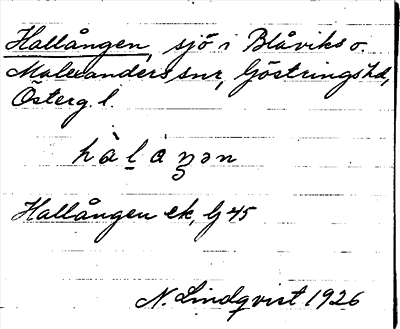 Hallången, sjö i Blåviks o.
Malexanders snr, Göstrings hd,
Österg. l.
hàlaŋən
Hallången ek, G 45
N. Lindqvist 1926